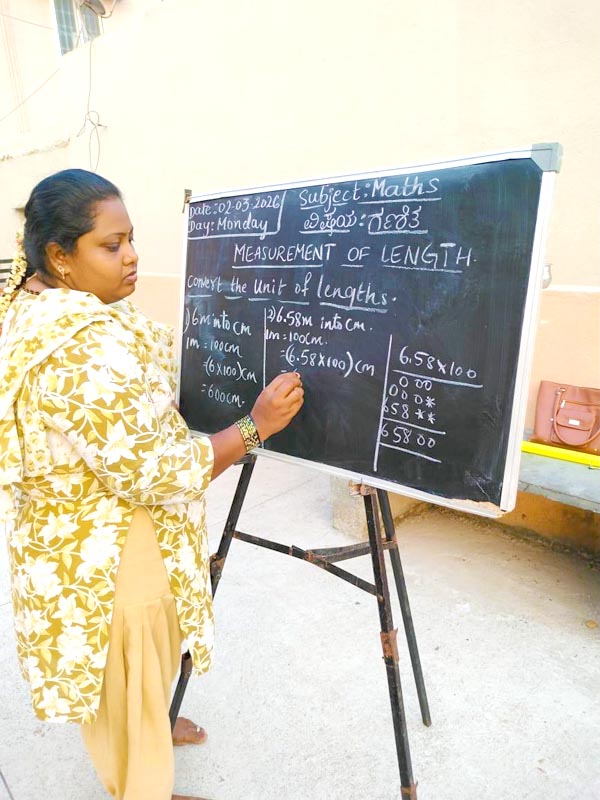 Date: 02-03-2026
Day: Monday
Subject: Maths
ವಿಷಯ: ಗಣಿತ
MEASUREMENT OF LENGTH.
Convert the Unit of lengths.
1) 6m into cm
1m = 100cm
=(6×100)cm
=600cm.
2) 6.58m into cm.
1m = 100cm.
=(6.58×100)cm
=
6.58×100
000
000*
658**
65800